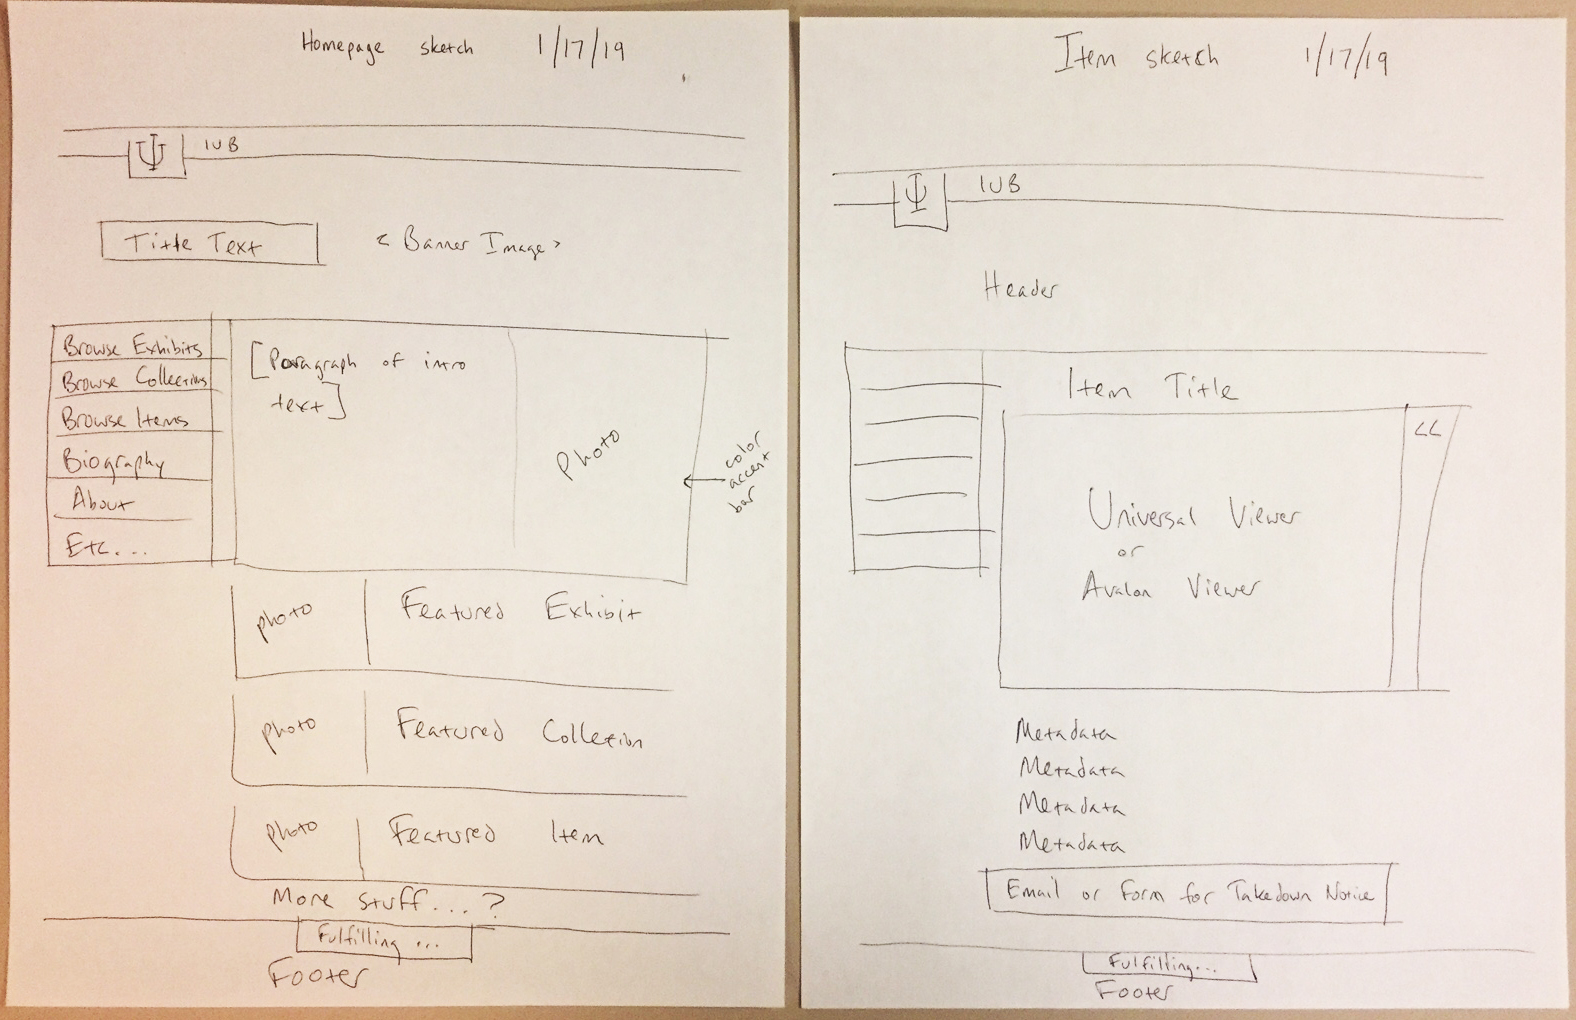 Homepage sketch 1/17/19
IUB
Title Text < Banner Image >
Browse Exhibits
Browse Collections
Browse Items
Biography
About
Etc...
[Paragraph of intro
text]
Photo
color
accent
bar
photo Featured Exhibit
photo Featured Collection
photo Featured Item
More stuff...?
Fulfilling ...
Footer
Item sketch 1/17/19
IUB
Header
Item Title
<<
Universal Viewer
or
Avalon Viewer
Metadata
Metadata
Metadata
Metadata
Email or Form for Takedown Notice
Fulfilling...
Footer